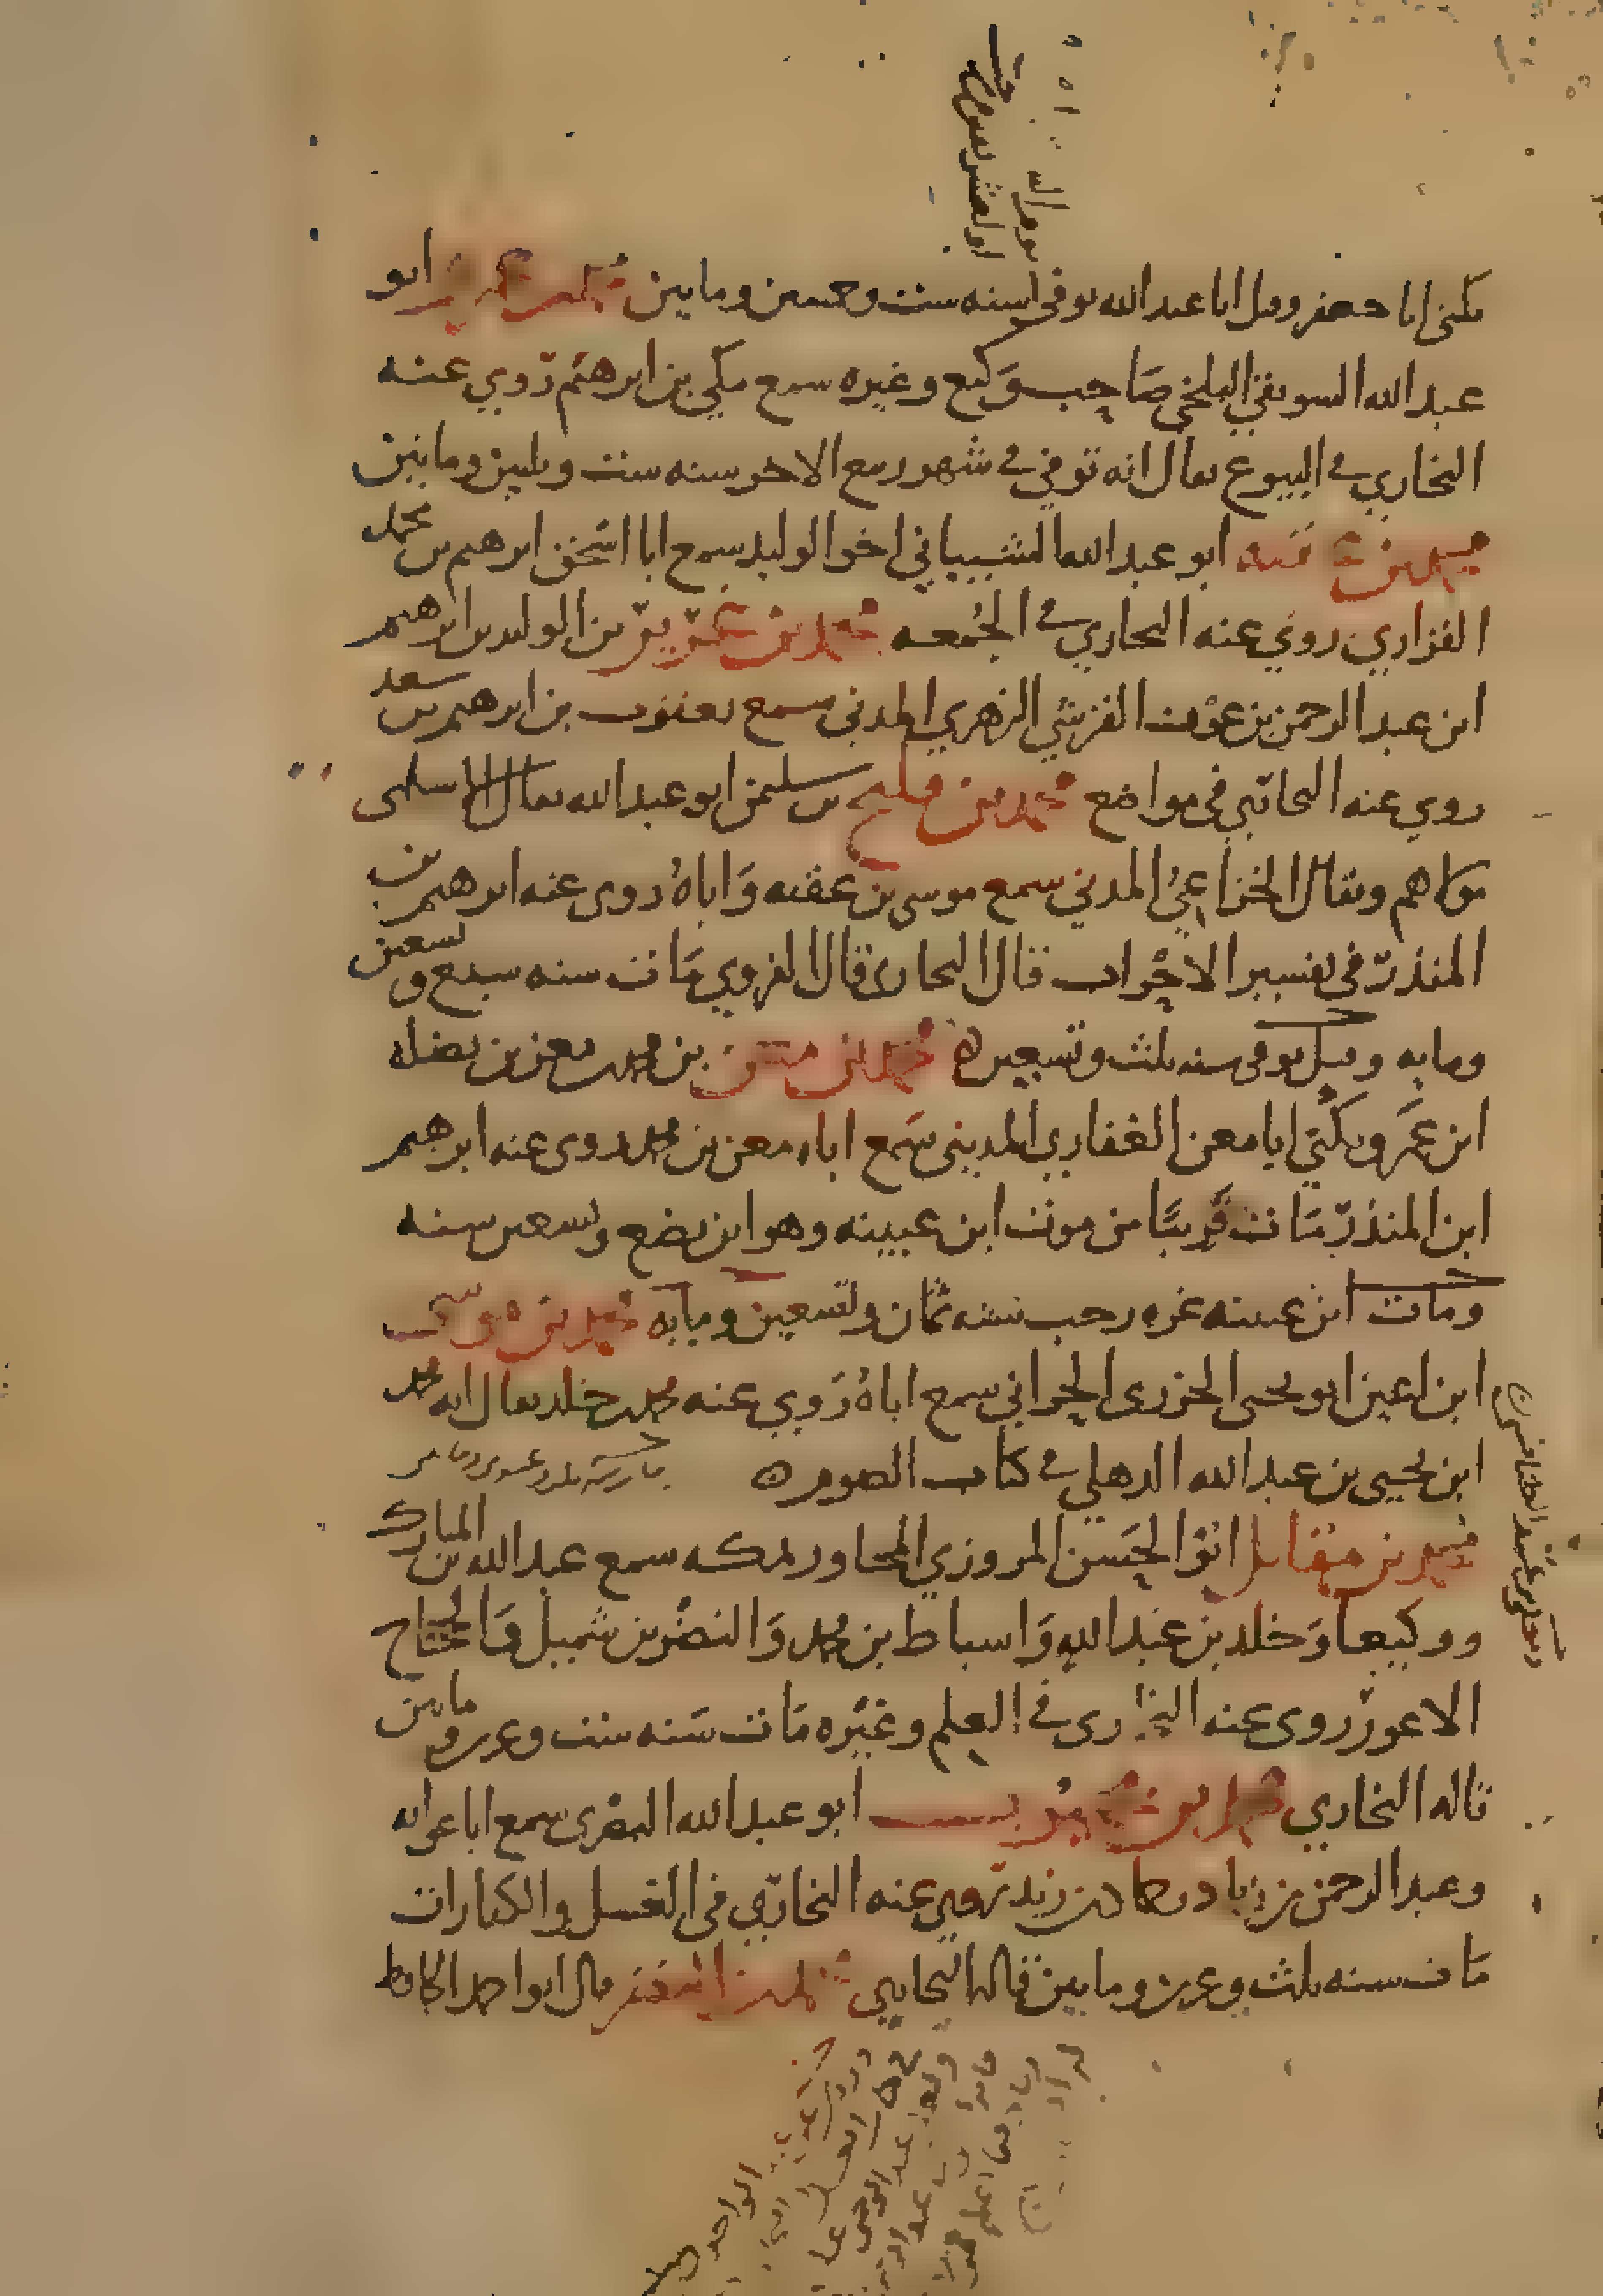 يكنى ابا جعفر وقيل ابا عبد الله توفى سنه ست وخمسين ومايتين ابو
عبد الله السويقي البلخي صاحب وكيع وغيره سمع مكي بن ابرهيم روي عنه
البخاري في البيوع يقال انه توفي في شهر ربيع الاخر سنه ست وثلثين ومايتين
محمد بن عقبه ابو عبد الله الشيباني اخو الوليد سمع ابا اسحق ابرهيم بن محمد
الفزاري روي عنه البخاري في الجمعه محمد بن غرير بن الوليد بن ابرهيم
ابن عبد الرحمن بن عوف القرشي الزهري المدني سمع يعقوب بن ابرهيم بن سعد
روي عنه البخاري في مواضع محمد بن فليح بن سليمن ابو عبد الله يقال الاسلمى
مولاهم ويقال الخزاعي المدني سمع موسى بن عقبه واباه روى عنه ابرهيم بن
المنذر في تفسير الاحزاب قال البخارى قال الفروي مات سنه سبع وتسعين
ومايه وقيل توفى سنه ثلث وتسعين ه محمد بن معن بن محمد بن معن بن نضله
ابن عمرو يكنى ابا معن الغفاري المديني سمع اباه معن بن محمد روى عنه ابرهيم
ابن المنذر مات قريبا من موت ابن عيينه وهو ابن بضع وتسعين سنه
ومات ابن عيينه غره رجب سنه ثمان وتسعين ومايه محمد بن موسى
ابن اعين ابو يحيى الجزرى الحراني سمع اباه روي عنه محمد بن خلد يقال انه محمد
ابن يحيى بن عبد الله الذهلي في كتاب الصوم ه
محمد بن مقاتل ابو الحسن المروزي المجاور بمكه سمع عبد الله بن المبارك
ووكيعا وخلد بن عبد الله واسباط بن محمد والنضر بن شميل والحجاج
الاعور روى عنه البخارى في العلم وغيره مات سنه ست وعشرين ومايتين
قاله البخاري محمد بن محبوب ابو عبد الله البصرى سمع ابا عوانه
وعبد الرحمن بن زياد وحماد بن زيد روى عنه البخاري في الغسل والكفارات
مات سنه ثلث وعشرين ومايتين قاله البخاري محمد بن قال ابو احمد الحافظ